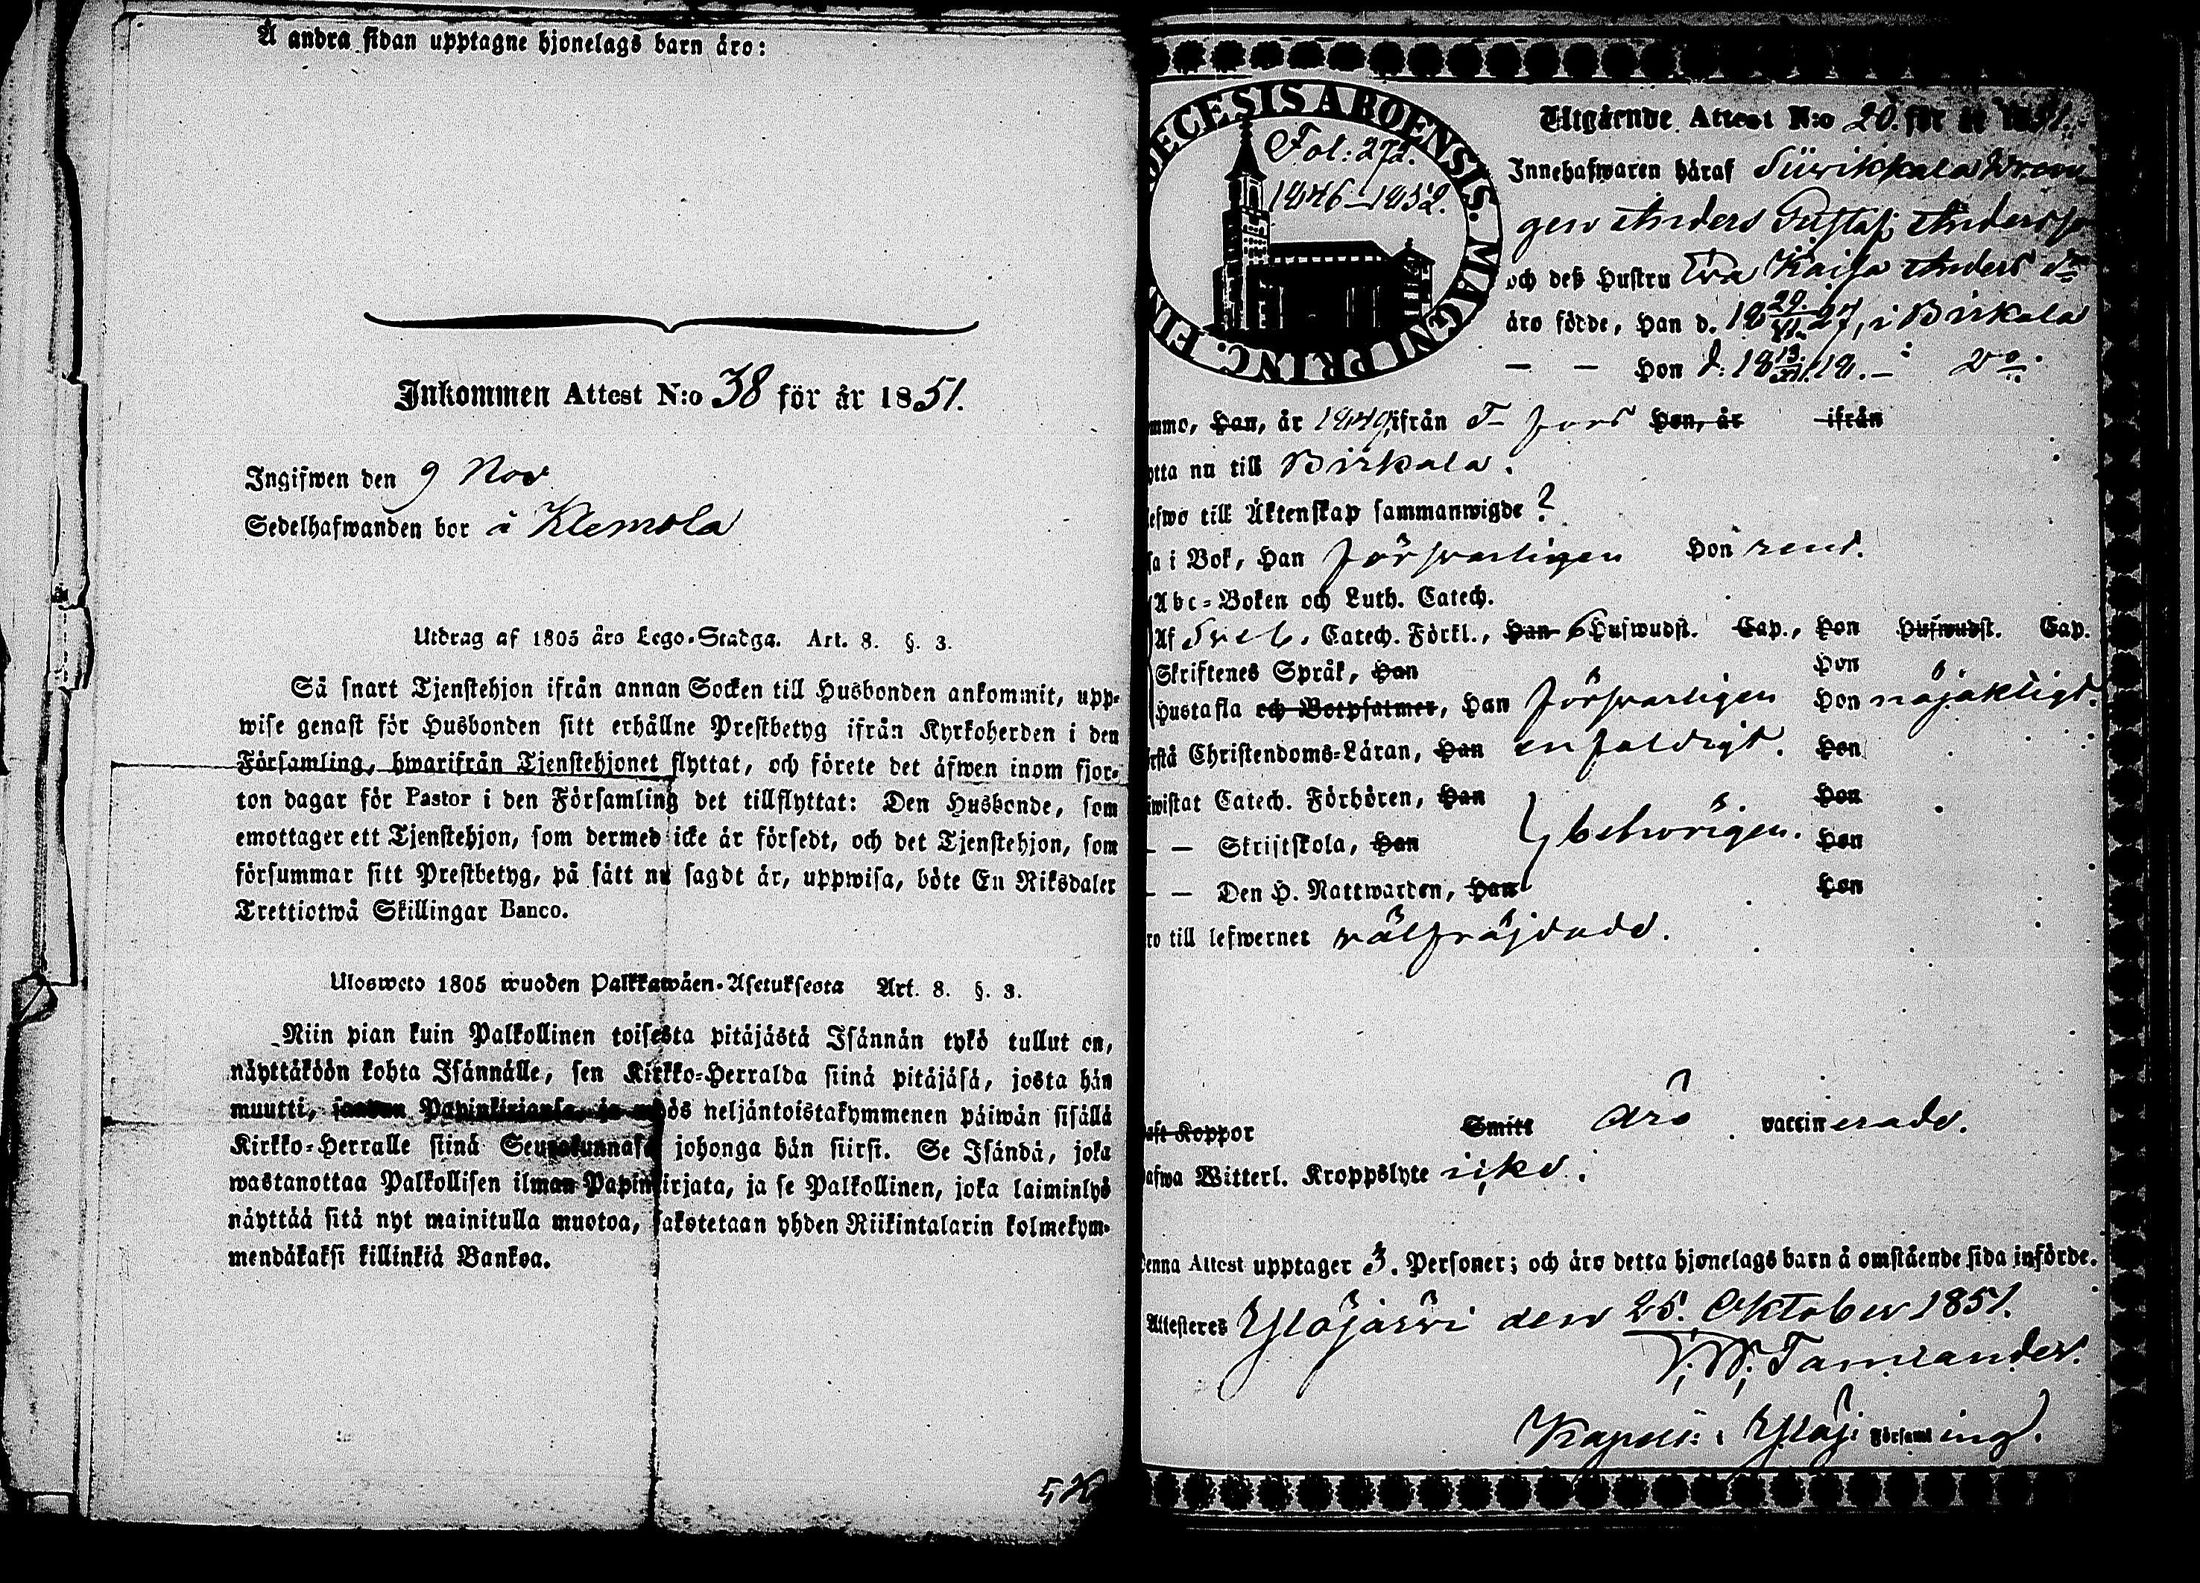 Å andra sidan upptagne hjonelags barn äro:
Inkommen Attest N:o 38 för år 1851.
Ingifwen den 9 Nov
Sedelhafwanden bor å Klemola
Utdrag af 1805 års Lego-Stadga. Art. 8. §. 3.
Så snart Tjenstehjon ifrån annan Socken till Husbonden ankommit, upp-
wise genast för Husbonden sitt erhållne Prestbetyg ifrån Kyrkoherden i den
Församling, hwarifrån Tjenstehjonet flyttat, och förete det äfwen inom fjor-
ton dagar för Pastor i den Församling det tillflyttat: Den Husbonde, som
emottager ett Tjenstehjon, som dermed icke är försedt, och det Tjenstehjon, som
försummar sitt Prestbetyg, på sätt nu sagdt är, uppwisa, böte En Riksdaler
Trettiotwå Skillingar Banco.
Ulosweto 1805 wuoden Palkkawäen-Asetuksesta Art. 8. §. 3.
Niin pian kuin Palkollinen toisesta pitäjästä Isännän tykö tullut on,
näyttäköön kohta Isännälle, sen Kirkko-Herralda siinä pitäjäsä, josta hän
muutti, saadun Papinkirjansa, ja myös neljäntoistakymmenen päiwän sisällä
Kirkko-Herralle siinä Seurakunnasa johonga hän siirsi. Se Isändä, joka
wastanottaa Palkollisen ilman Papinkirjata, ja se Palkollinen, joka laiminlyö
näyttää sitä nyt mainitulla muotoa, sakotetaan yhden Riikintalarin kolmekym-
mendäkaksi killinkiä Bankoa.
DECESIS ABOENSIS. MAGNI PRINC. FIN
Fol: 272.
1846-1852.
Utgående Attest N:o 20. för år 1851.
Innehafwaren häraf Siivikkala Dräng
gen Anders Gustaf Andersso
och deß Hustru Eva Kaisa Anders dr
äro födde, Han d. 18 29/VI 27, i Birkala
— — Hon d: 18 13/XI 18. - i do.
mmo, Han, år 1849 ifrån T fors Hon, år ifrån
ytta nu till Birkala.
efwo till Äktenskap sammanwigde ?
sa i Bok, Han försvarligen Hon rent.
Abc-Boken och Luth. Catech.
Af Sveb. Catech. Förkl., Han 6 Hufwudst. Cap., Hon Hufwudst. Cap.
Skriftenes Språk, Han Hon
Hustafla och Botpsalmer, Han försvarligen Hon nöjaktigt.
rstå Christendoms-Läran, Han enfaldigt. Hon
iwistat Catech. Förhören, Han Hon
— — Skriftskola, Han behörigen. Hon
— — Den H. Nattwarden, Han Hon
ro till lefwernet välfräjdade.
aft Koppor Smitt äro vaccinerade.
afwa Witterl. Kroppslyte icke.
Denna Attest upptager 3. Personer; och äro detta hjonelags barn å omstående sida införde.
Attesteres Ylöjärvi den 25. Oktober 1851.
F. W. Tamlander.
Kapell: i Ylöj: Församling.